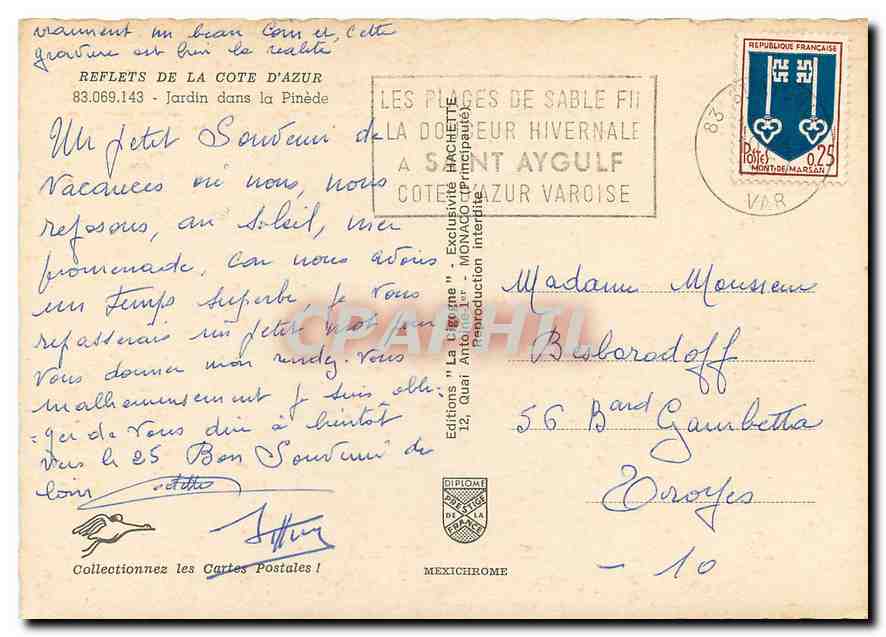 vraiment un beau coin et, cette
gravure est bien la realité
REFLETS DE LA COTE D'AZUR
83.069.143 - Jardin dans la Pinède
Un petit Souvenir de
Vacances où nous, nous
reposons, au Soleil, mer
promenade, car nous avons
un temps superbe, Je vous
repasserais un petit mot
Vous donner mon rendez-Vous
malheureusement Je suis obli-
-ger de Vous dire à bientôt
vers le 25 Bon Souvenir de
loin
Collectionnez les Cartes Postales !
LES PLAGES DE SABLE FIN
LA DOUCEUR HIVERNALE
A SAINT AYGULF
COTE D'AZUR VAROISE
Editions "La Cigogne" - Exclusivité HACHETTE
12, Quai Antoine-1er - MONACO (Principauté)
Reproduction interdite
CPAPHIL
DIPLOME
PRESTIGE
DE LA
FRANCE
MEXICHROME
REPUBLIQUE FRANÇAISE
POSTES 0,25
MONT-DE-MARSAN
83
VAR
Madame Monsieur
Besboradoff
56 Bard Gambetta
Troyes
- 10